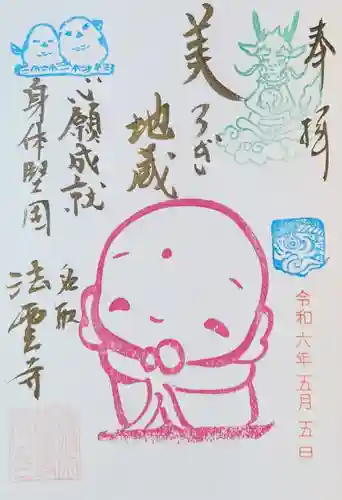 奉拝
美ろぎ
地蔵
心願成就
身体堅固
名取
法雲寺
令和六年五月五日